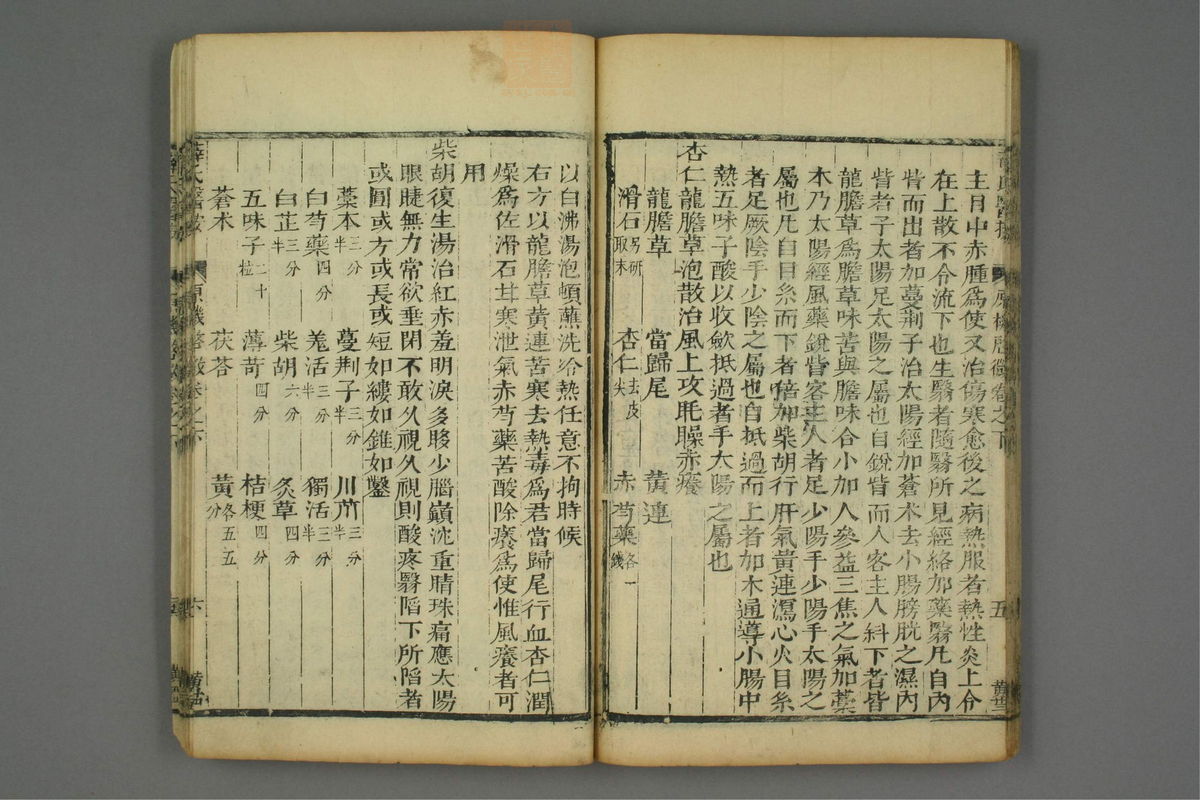 主目中赤腫爲使又治傷寒愈後之病熱服者熱性炎上令
在上散不令流下也生翳者隨翳所見經絡加藥翳凡自內
眥而出者加蔓荆子治太陽經加蒼术去小腸膀胱之濕內
眥者手太陽足太陽之屬也自銳眥而入客主人斜下者皆
龍膽草爲膽草味苦與膽味合小加人參益三焦之氣加藁
本乃太陽經風藥銳眥客主人者足少陽手少陽手太陽之
屬也凡自目系而下者倍加柴胡行肝氣黃連瀉心火目系
者足厥陰手少陰之屬也自抵過而上者加木通導小腸中
熱五味子酸以收斂抵過者手太陽之屬也
杏仁龍膽草泡散治風上攻眊矂赤癢
龍膽草 當歸尾 黃連
滑石另研取末 杏仁去皮尖 赤芍藥各一錢
以白沸湯泡頓蘸洗冷熱任意不拘時候
右方以龍膽草黃連苦寒去熱毒爲君當歸尾行血杏仁潤
燥爲佐滑石甘寒泄氣赤芍藥苦酸除癢爲使惟風癢者可
用
柴胡復生湯治紅赤羞明淚多眵少腦巔沈重睛珠痛應太陽
眼睫無力常欲垂閉不敢久視久視則酸疼翳陷下所陷者
或圓或方或長或短如縷如錐如鑿
藁本三分半 蔓荆子三分半 川芎三分半
白芍藥四分 羗活三分半 獨活三分半
白芷三分 柴胡六分 炙草四分
五味子二十粒 薄荷四分 桔梗四分
蒼术 茯苓 黃各五五分
薛氏醫按
六